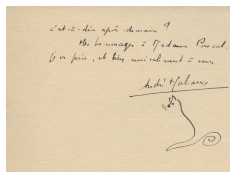 c'est-à-dire après demain ?
Mes hommages à Madame Pascal
je vous prie, et bien amicalement à vous
André Malraux